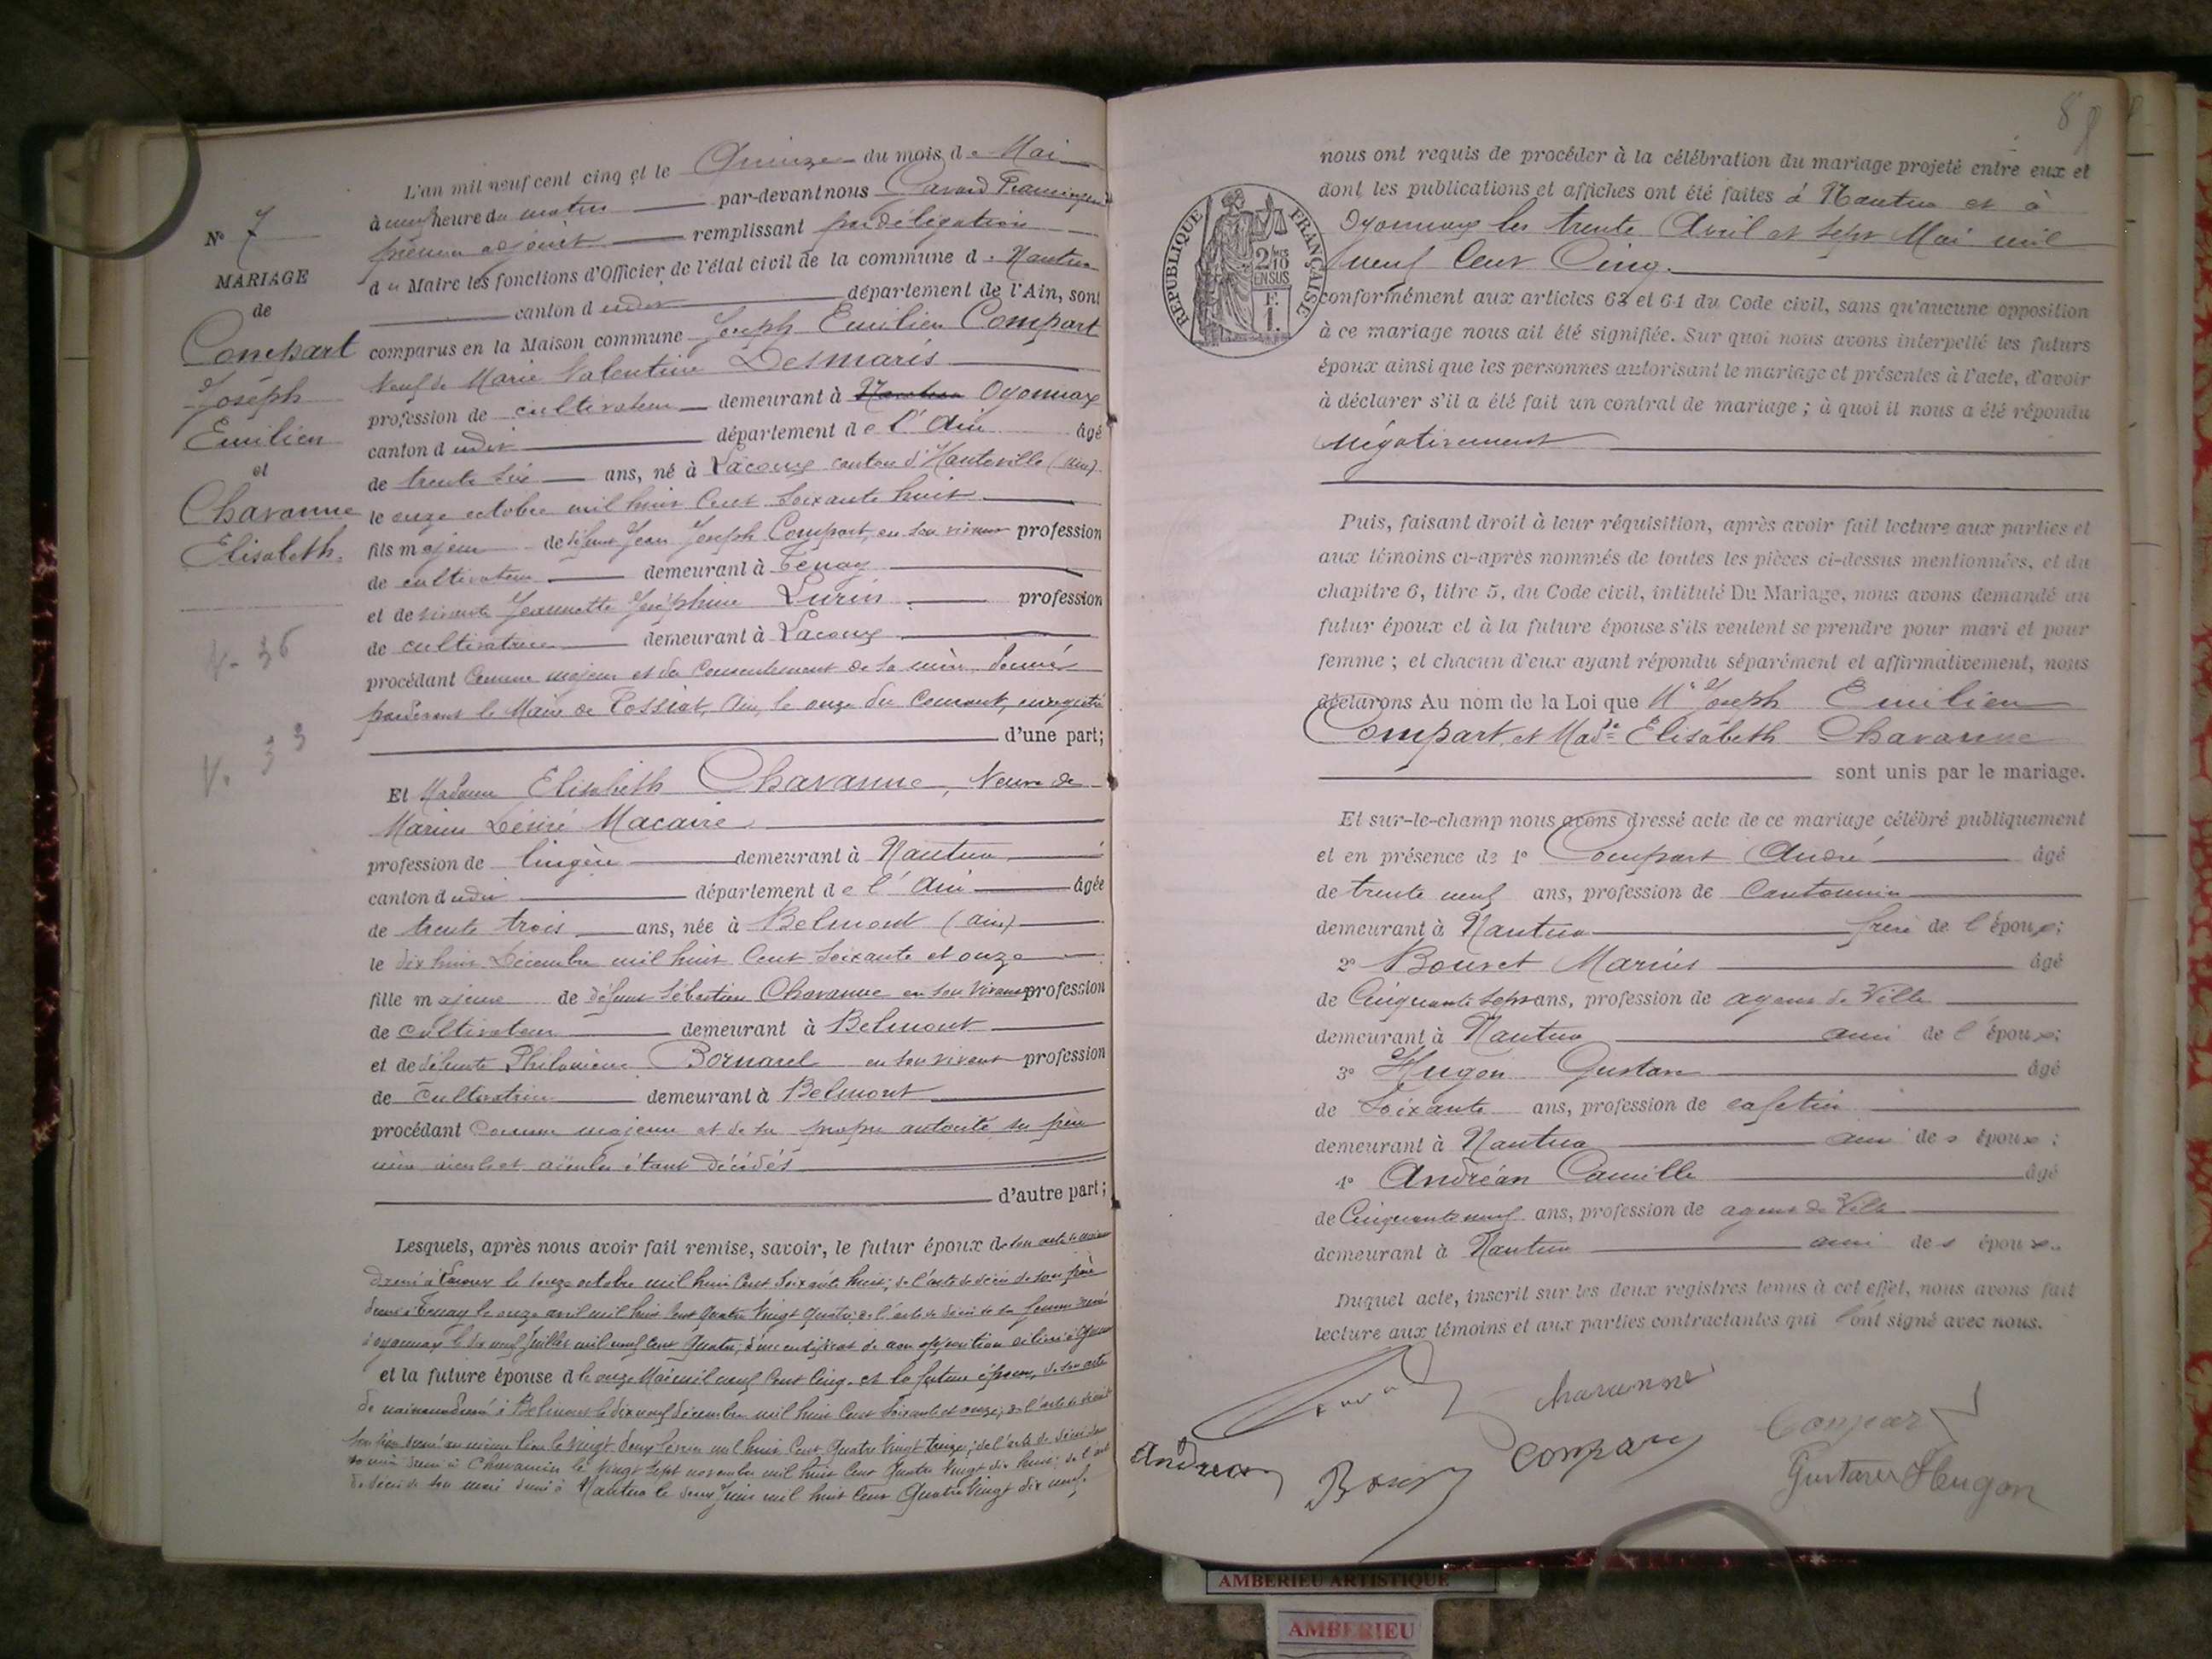 L'an mil neuf cent cinq et le Quinze du mois de Mai
à neuf heure du matin par-devant nous Savard
premier adjoint remplissant par délégation
du Maire les fonctions d'Officier de l'état civil de la commune de Nantua
canton dudit département de l'Ain, sont
comparus en la Maison commune Joseph Emilien Compart
Veuf de Marie Valentine Desmaris
profession de cultivateur demeurant à Oyonnax
canton dudit département de l'Ain âgé
de trente six ans, né à Lacoux canton d'Hauteville (Ain)
le onze octobre mil huit cent soixante huit
fils majeur de défunt Jean Joseph Compart, en son vivant profession
de cultivateur demeurant à Tenay
et de vivante Jeannette Joséphine Lurin profession
de cultivatrice demeurant à Lacoux
procédant comme majeur et du consentement de sa mère donné
pardevant le Maire de Tossiat, Ain, le onze du courant, enregistré
d'une part;
N° 7
MARIAGE
de
Compart
Joseph
Emilien
et
Chavanne
Elisabeth.
V. 36
V. 33
Et Madame Elisabeth Chavanne, Veuve de
Marius Désiré Macaire
profession de lingère demeurant à Nantua
canton dudit département de l'Ain âgée
de trente trois ans, née à Belmont (Ain)
le dix huit Décembre mil huit cent soixante et onze
fille majeure de défunt Sébastien Chavanne en son vivant profession
de cultivateur demeurant à Belmont
et de défunte Philomène Bornarel en son vivant profession
de cultivatrice demeurant à Belmont
procédant comme majeure et de sa propre autorité ses père
mère aieuls et aieules étant décédés
d'autre part;
Lesquels, après nous avoir fait remise, savoir, le futur époux de son acte de
à Lacoux le douze octobre mil huit cent soixante huit; de l'acte de décès de son père
à Tenay le onze avril mil huit cent quatre vingt quatre; de l'acte de décès de sa femme
à Oyonnax le dix neuf Juillet mil neuf cent quatre; d'un certificat de non opposition délivré à
et la future épouse d le onze Mai mil neuf cent cinq. et la future épouse, de son acte
de naissance à Belmont le dix neuf décembre mil huit cent soixante et onze; de l'acte de décès
son père au même lieu le vingt deux mil huit cent quatre vingt treize; de l'acte de décès de
sa mère à Chavannes le vingt sept novembre mil huit cent quatre vingt dix huit; de l'acte
de décès de son mari à Nantua le deux Juin mil huit cent quatre vingt dix neuf.
8
nous ont requis de procéder à la célébration du mariage projeté entre eux et
dont les publications et affiches ont été faites à Nantua et à
Oyonnax les trente Avril et sept Mai mil
neuf cent Cinq.
REPUBLIQUE FRANÇAISE
2/10
EN SUS
conformément aux articles 63 et 64 du Code civil, sans qu'aucune opposition
à ce mariage nous ait été signifiée. Sur quoi nous avons interpellé les futurs
époux ainsi que les personnes autorisant le mariage et présentes à l'acte, d'avoir
à déclarer s'il a été fait un contrat de mariage; à quoi il nous a été répondu
négativement
Puis, faisant droit à leur réquisition, après avoir fait lecture aux parties et
aux témoins ci-après nommés de toutes les pièces ci-dessus mentionnées, et du
chapitre 6, titre 5, du Code civil, intitulé Du Mariage, nous avons demandé au
futur époux et à la future épouse s'ils veulent se prendre pour mari et pour
femme; et chacun d'eux ayant répondu séparément et affirmativement, nous
déclarons Au nom de la Loi que Mr Joseph Emilien
Compart, et Made Elisabeth Chavanne
sont unis par le mariage.
Et sur-le-champ nous avons dressé acte de ce mariage célébré publiquement
et en présence de 1° Compart André âgé
de trente neuf ans, profession de Cantonnier
demeurant à Nantua frère de l'époux;
2° Bouvet Marius âgé
de Cinquante sept ans, profession de agent de Ville
demeurant à Nantua ami de l'époux;
3° Hugon Gustave âgé
de Soixante ans, profession de cafetier
demeurant à Nantua ami des époux;
4° Andréan Camille âgé
de Cinquante neuf ans, profession de agent de Ville
demeurant à Nantua ami des époux.
Duquel acte, inscrit sur les deux registres tenus à cet effet, nous avons fait
lecture aux témoins et aux parties contractantes qui l'ont signé avec nous.
Chavanne
Compart
Andrean
Compart
Gustave Hugon
AMBERIEU ARTISTIQUE
AMBERIEU